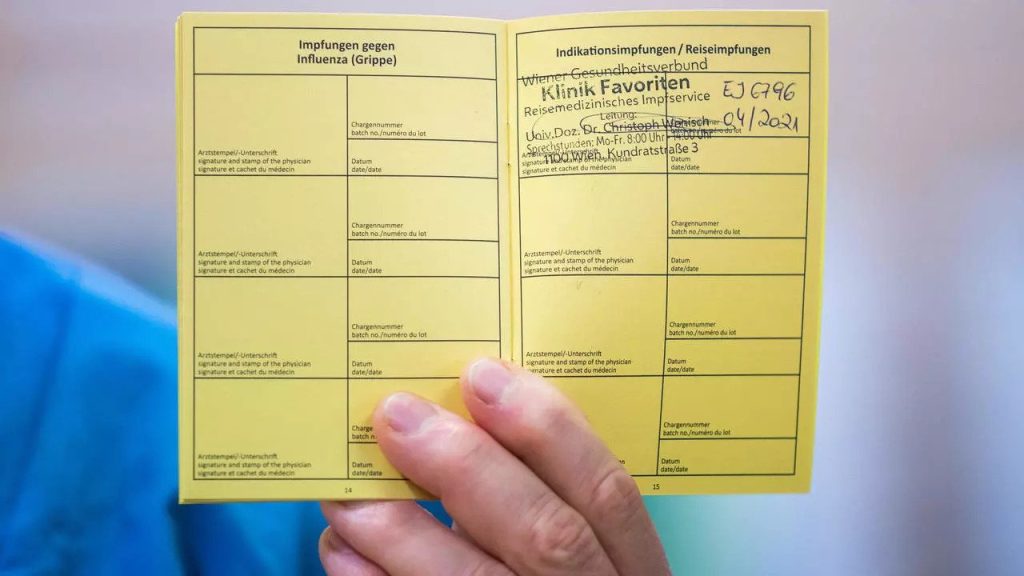 Impfungen gegen
Influenza (Grippe)
Chargennummer
batch no./numéro du lot
Arztstempel/-Unterschrift
signature and stamp of the physician
signature et cachet du médecin
Datum
date/date
Chargennummer
batch no./numéro du lot
Arztstempel/-Unterschrift
signature and stamp of the physician
signature et cachet du médecin
Datum
date/date
Chargennummer
batch no./numéro du lot
Arztstempel/-Unterschrift
signature and stamp of the physician
signature et cachet du médecin
Datum
date/date
batch
Arztstempel/-Unterschrift
signature and stamp of the physician
signature et cachet du médecin
Datum
date/date
14
Indikationsimpfungen / Reiseimpfungen
Wiener Gesundheitsverbund
Klinik Favoriten
Reisemedizinisches Impfservice
Leitung:
Univ.Doz. Dr. Christoph Wenisch
Sprechstunden: Mo-Fr. 8:00 Uhr - 14:00 Uhr
1100 Wien, Kundratstraße 3
EJ6796
04/2021
batch no./numéro du lot
signature et cachet du médecin
Datum
date/date
Chargennummer
batch no./numéro du lot
Arztstempel/-Unterschrift
signature and stamp of the physician
signature et cachet du médecin
Datum
date/date
Chargennummer
batch no./numéro du lot
Arztstempel/-Unterschrift
signature and stamp of the physician
signature et cachet du médecin
Datum
date/date
Chargennummer
batch no./numéro du lot
Datum
date/date
15